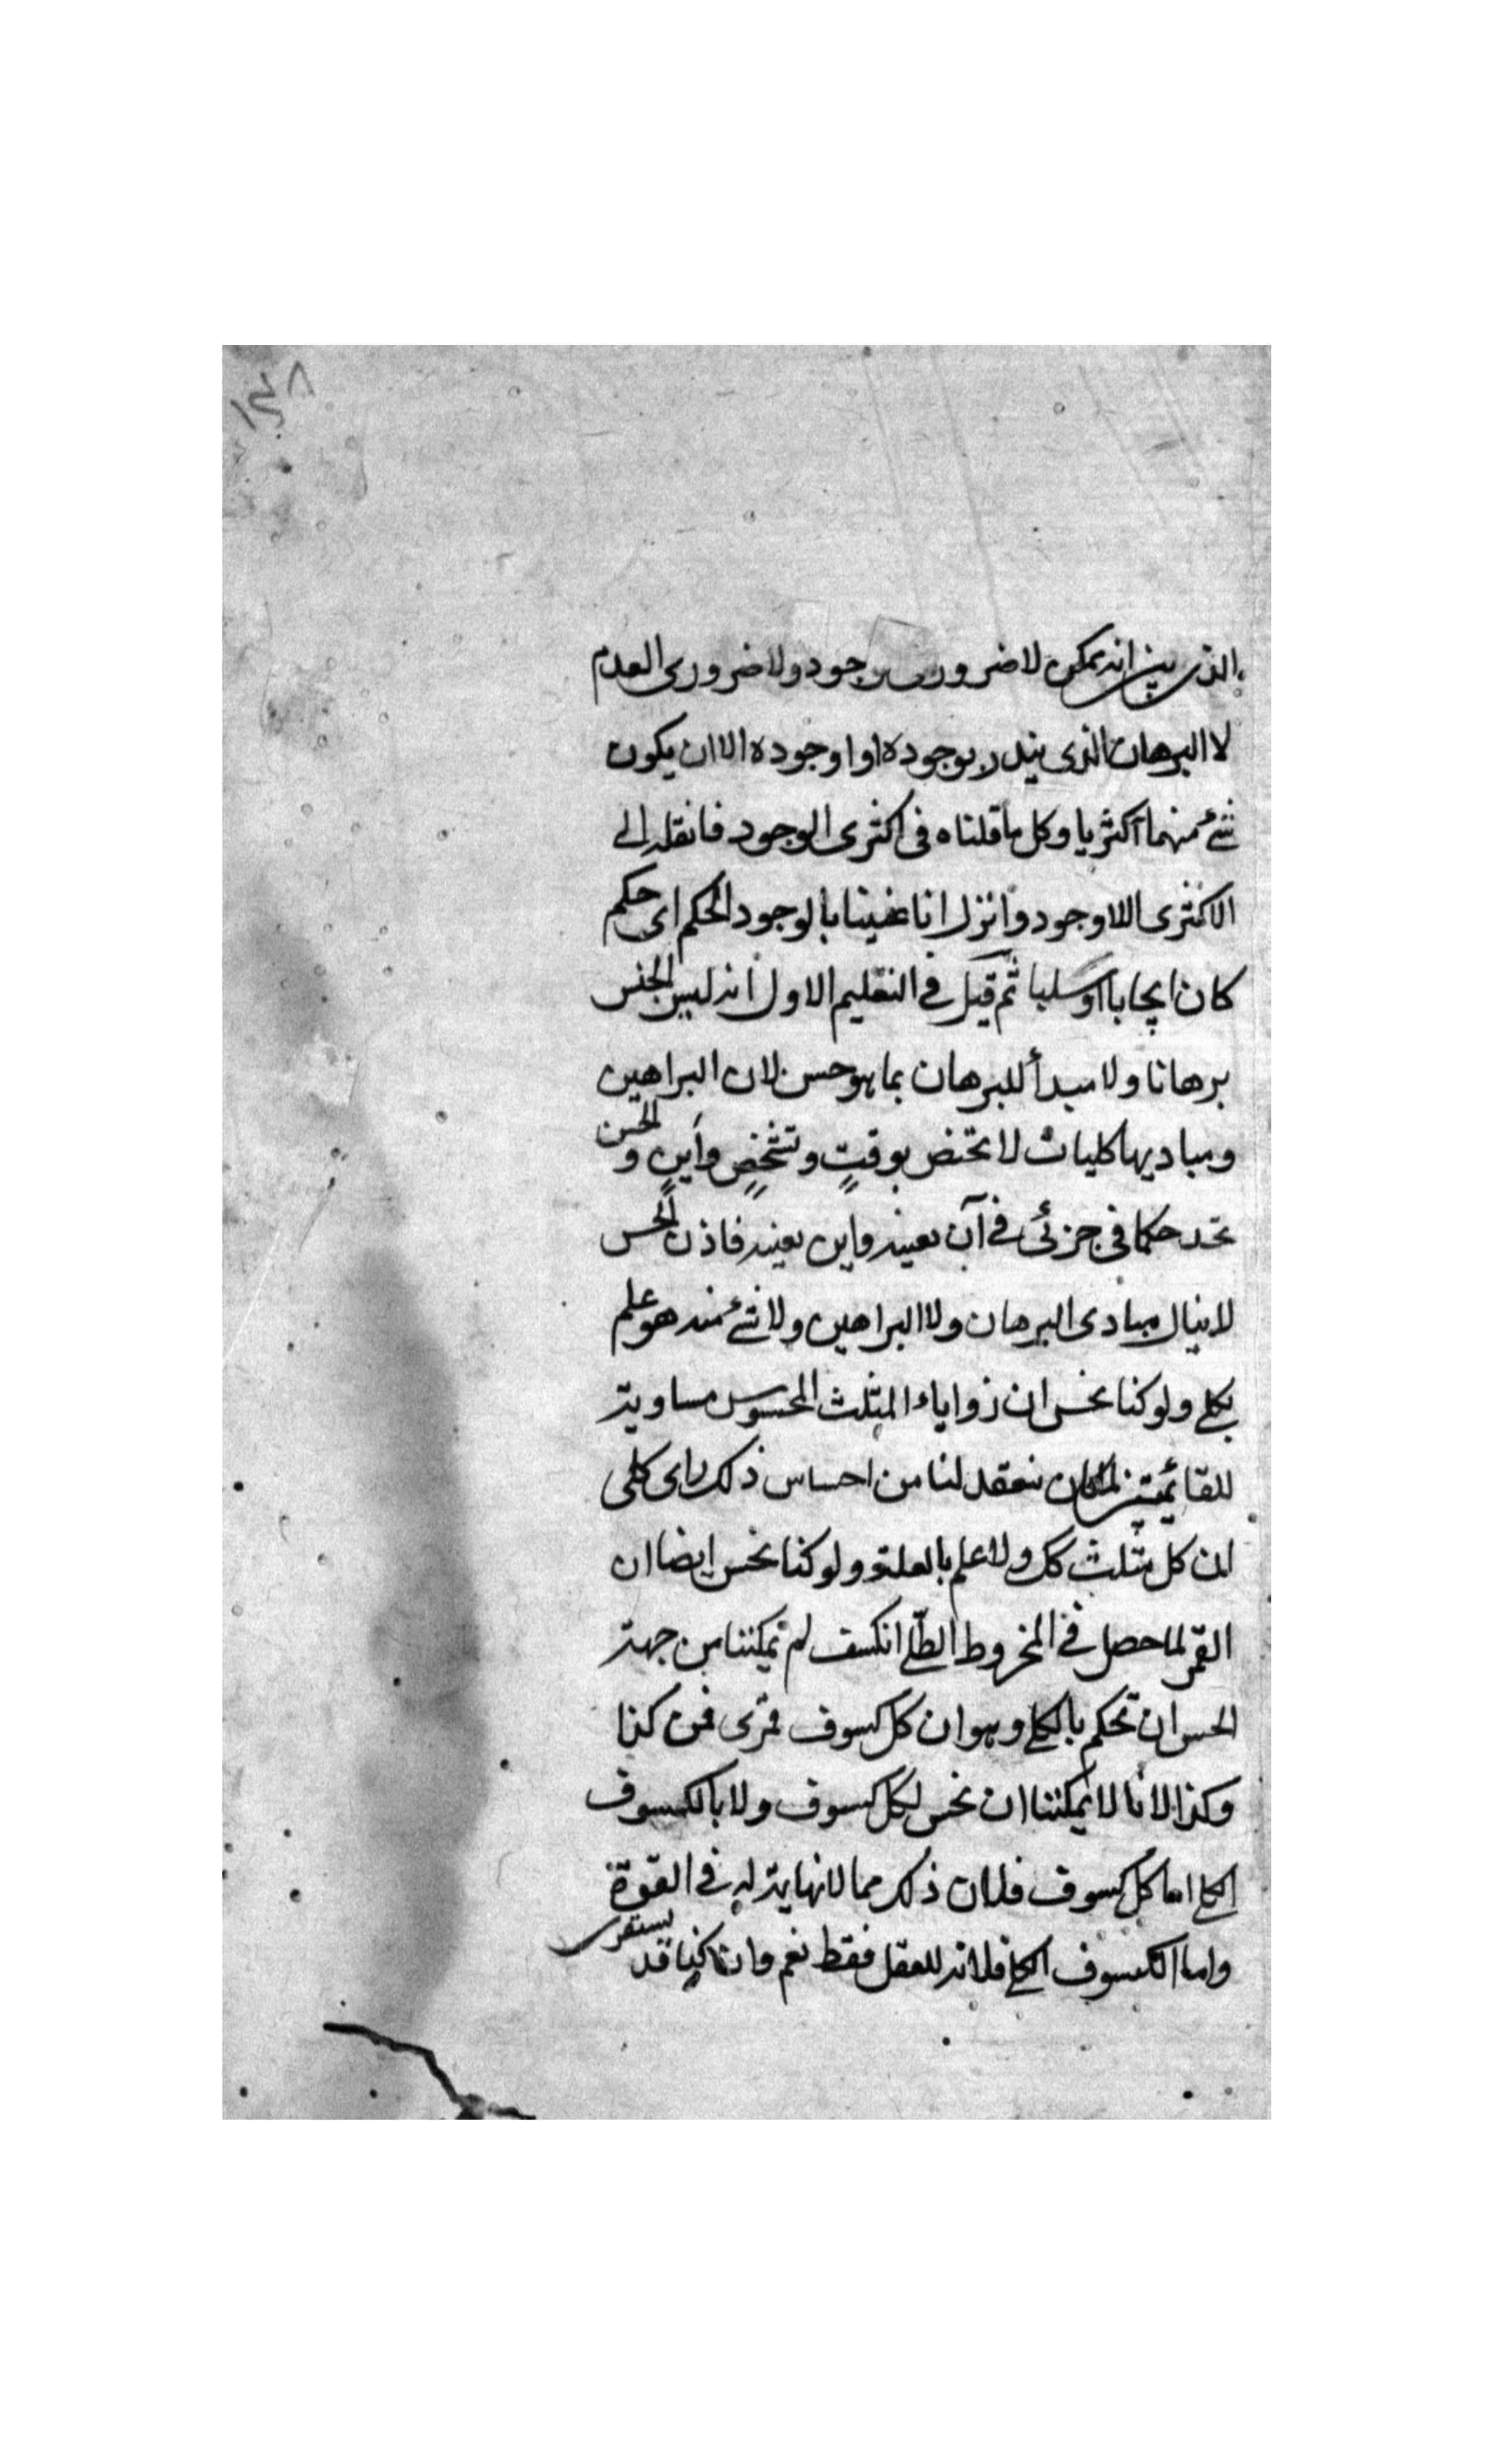 ١٤٨
الذى يبين انه ممكن لا ضرورى وجود ولا ضرورى العدم
لا البرهان الذى ينذر بوجوده او اوجوده الا ان يكون
شئ منهما اكثريا وكل ما قلناه فى اكثرى الوجود فانقله الى
الاكثرى اللاوجود وانزل انا عنينا بالوجود الحكم اى حكم
كان ايجابا او سلبا ثم قيل فى التعليم الاول انه ليس الجنس
برهانا ولا مبدأ للبرهان بما هو حس لان البراهين
ومباديها كليات لا تختص بوقتٍ وتشخصٍ واَينٍ و الحس
تحد حكما فى جزئى فى آن بعينه واين بعينه فاذن الحس
لا ينال مبادى البرهان ولا البراهين ولا شئ منه هو علم
بكلى ولو كنا نحس ان زواياء المثلث المحسوس مساوية
للقائمتين لما كان ينعقد لنا من احساس ذلك راى كلى
ان كل مثلث كك ولا علم بالعلة ولو كنا نحس ايضا ان
القمر لما حصل فى المخروط الظلى انكسف لم تمكننا من جهة
الحس ان نحكم بالكلى وهو ان كل كسوف قمرى فمن كذا
وكذا لانا لا يمكننا ان نحس لكل كسوف ولا بالكسوف
الكلى اما كل كسوف فلان ذلك مما لا نهاية له فى القوة
واما الكسوف الكلى فلانه للعقل فقط نعم وان كنا قد يستقرى